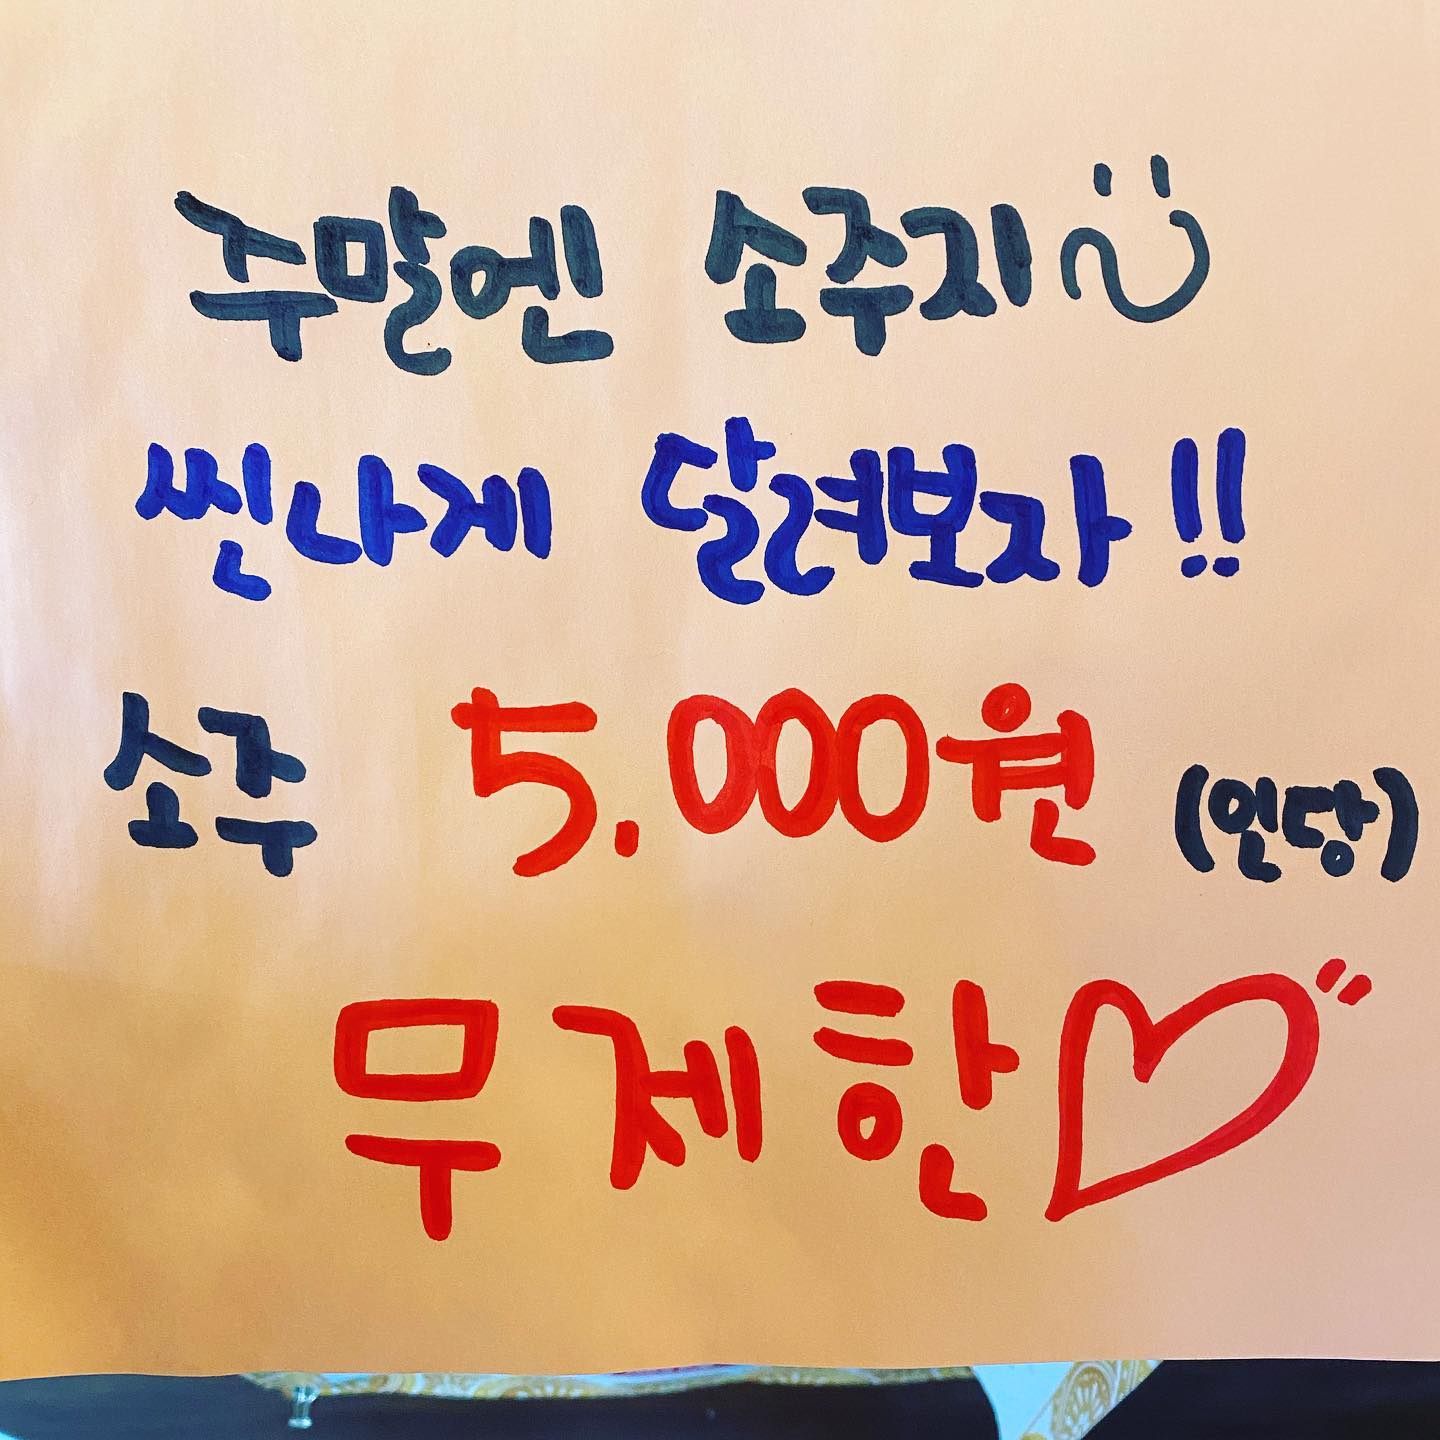 주말엔 소주지~
씬나게 달려보자!!
소주 5.000원 (인당)
무제한♡